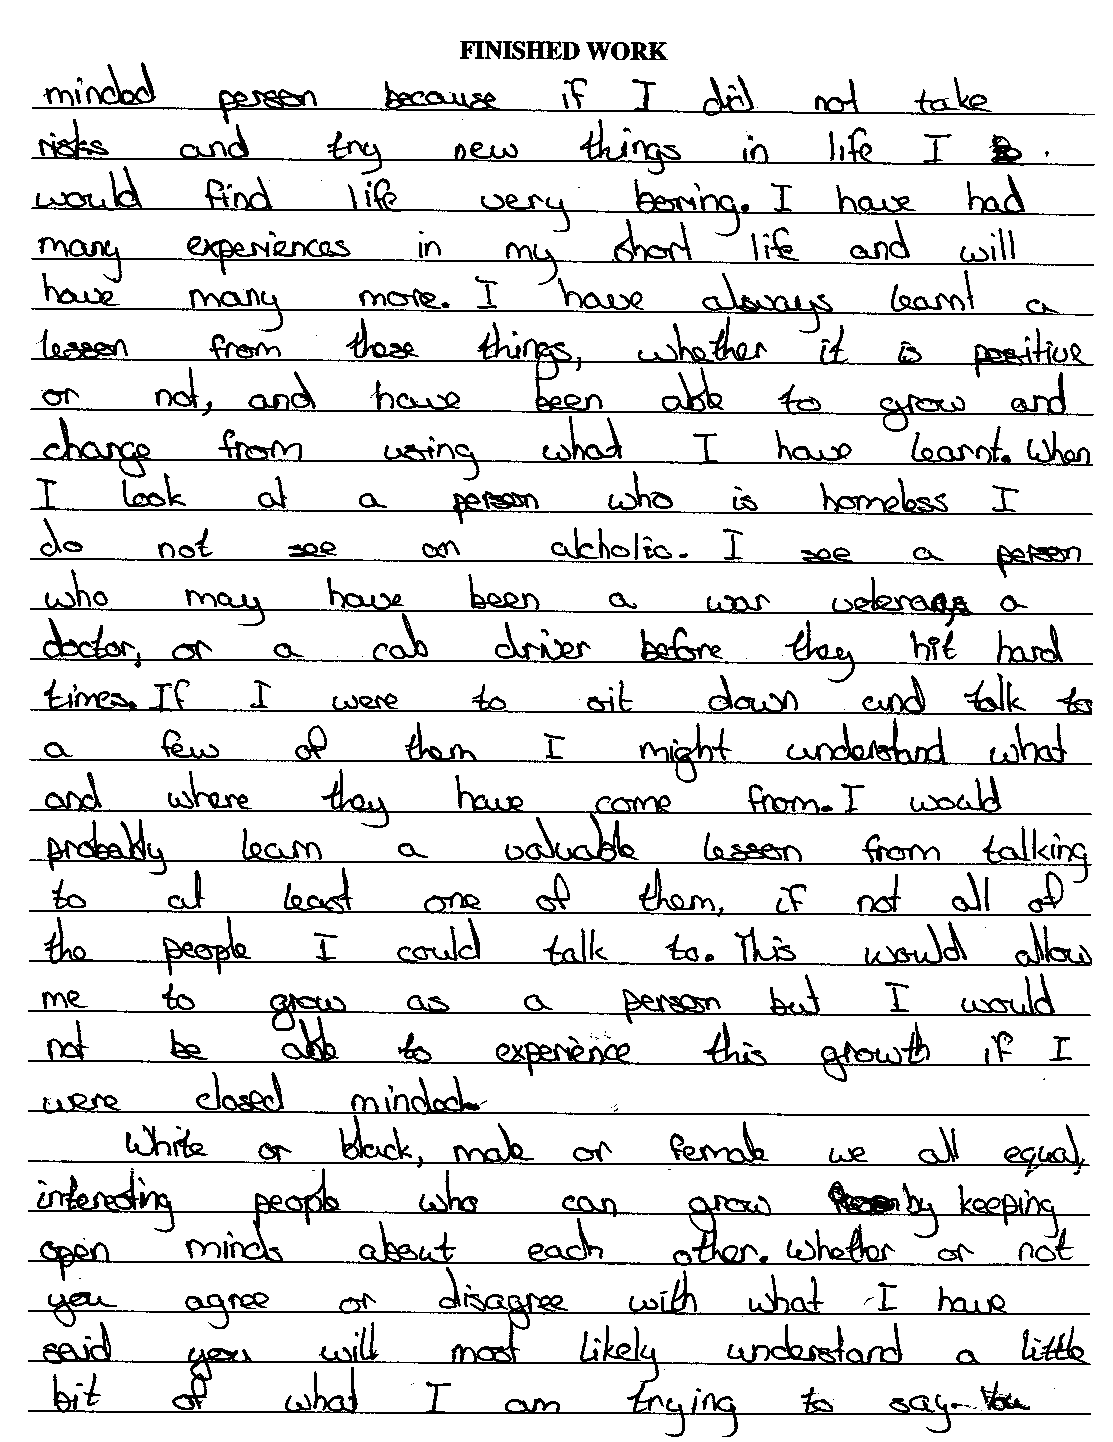 FINISHED WORK
minded person because if I did not take
risks and try new things in life I
would find life very boring. I have had
many experiences in my short life and will
have many more. I have always learnt a
lesson from these things, whether it is positive
or not, and have been able to grow and
change from using what I have learnt. When
I look at a person who is homeless I
do not see an alcholic. I see a person
who may have been a war veteran, a
doctor, or a cab driver before they hit hard
times. If I were to sit down and talk to
a few of them I might understand what
and where they have come from. I would
probably learn a valuable lesson from talking
to at least one of them, if not all of
the people I could talk to. This would allow
me to grow as a person but I would
not be able to experience this growth if I
were closed minded.
White or black, male or female we all equal,
interesting people who can grow by keeping
open minds about each other. Whether or not
you agree or disagree with what I have
said you will most likely understand a little
bit of what I am trying to say. You